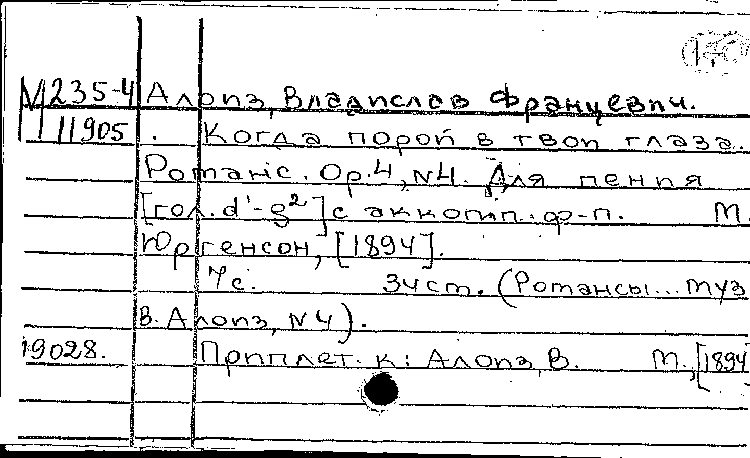 М 235-4 Алоиз, Владислав Францевич.
11905 . Когда порой в твои глаза.
Романс. Ор.4, N4. Для пения
[гол. d¹-g²] с аккомп. ф-п. М.
Юргенсон, [1894].
7с. 34см. (Романсы... муз
В. Алоиз, N4).
19028. Приплет. к: Алоиз, В. М., [1894